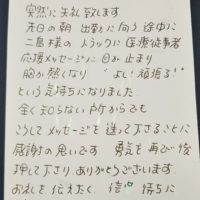 突然に失礼致します
先日の朝 出勤に向う途中に
二島様の トラックに 医療従事者
応援メッセージに 目が止まり
胸が熱くなり "よし!頑張ろ!"
という気持ちになりました
全く知らない所からでも
こうして メッセージを 送って下さることに
感謝の思いです 勇気を再び
押して下さり ありがとうございます
お礼を伝えたく 持ちに